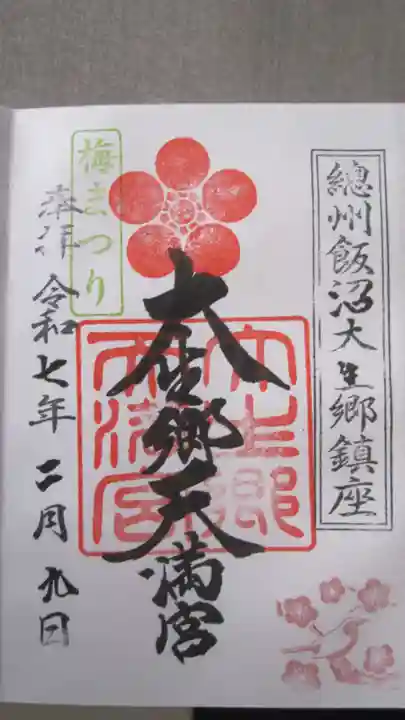 總州飯沼大生郷鎮座
大生郷天満宮
大生郷天満宮
梅まつり
奉拝 令和七年二月九日